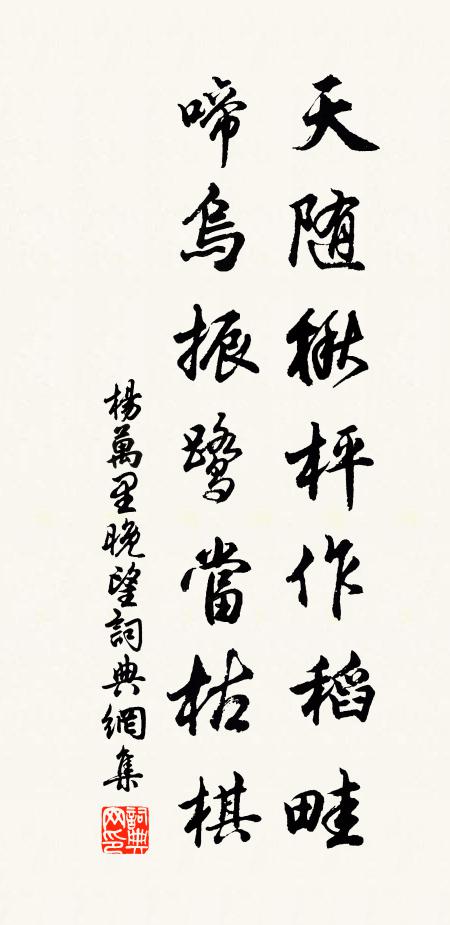 天随楸枰作稻畦
啼烏振鷺當枯棋
楊萬里晚望詞典網集
詞典
网印